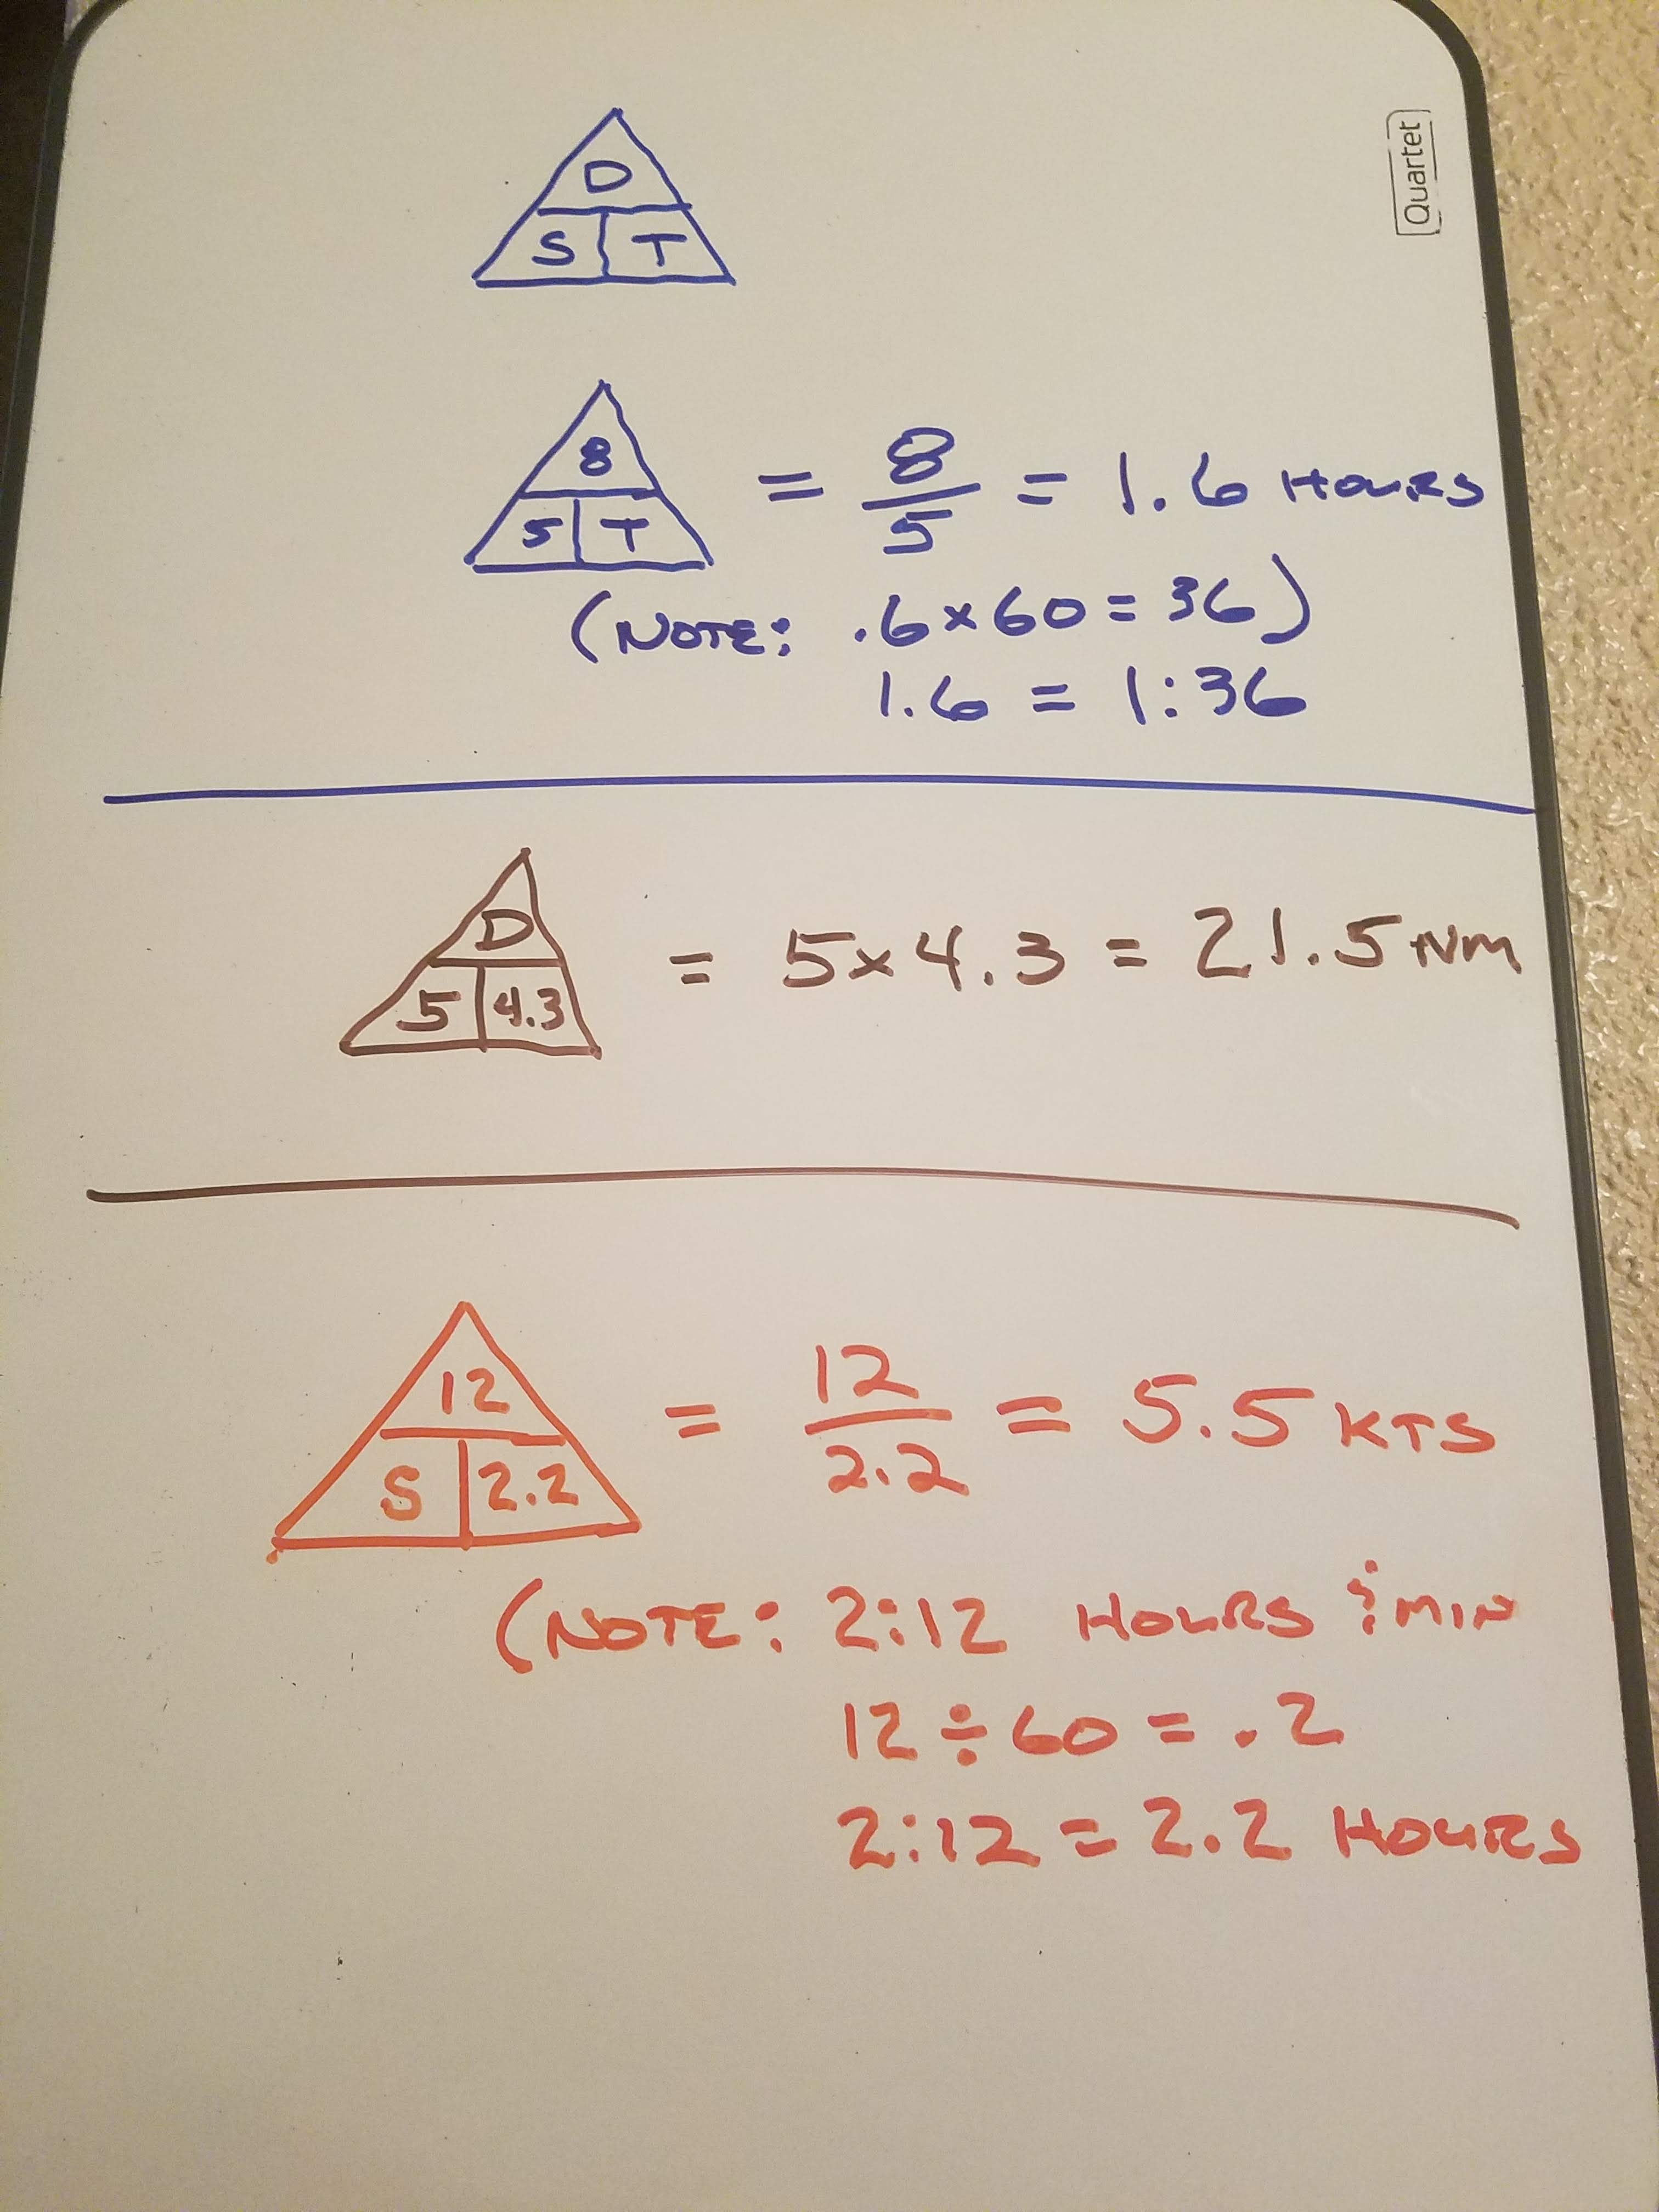 Quartet
D
S T
8
5 T
= 8/5 = 1.6 HOURS
(NOTE: .6x60=36)
1.6 = 1:36
D
5 4.3
= 5x4.3 = 21.5 NM
12
S 2.2
= 12/2.2 = 5.5 KTS
(NOTE: 2:12 HOURS & MIN
12÷60 = .2
2:12 = 2.2 HOURS